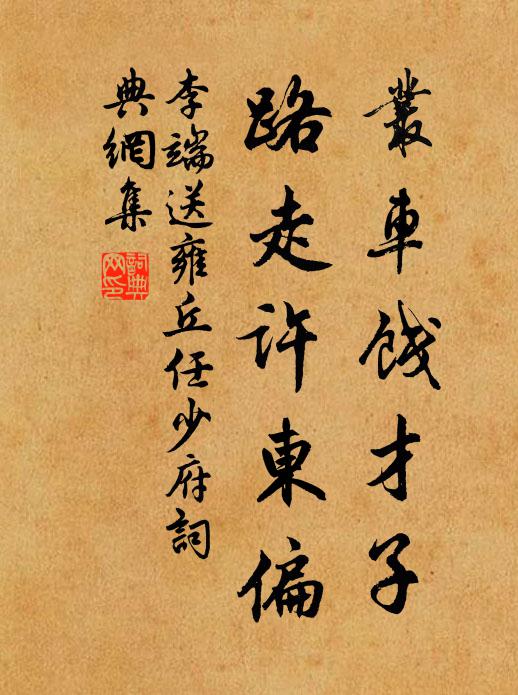 叢車餞才子
路走許東偏
李端送雍丘任少府詞
典網集
詞典
网印